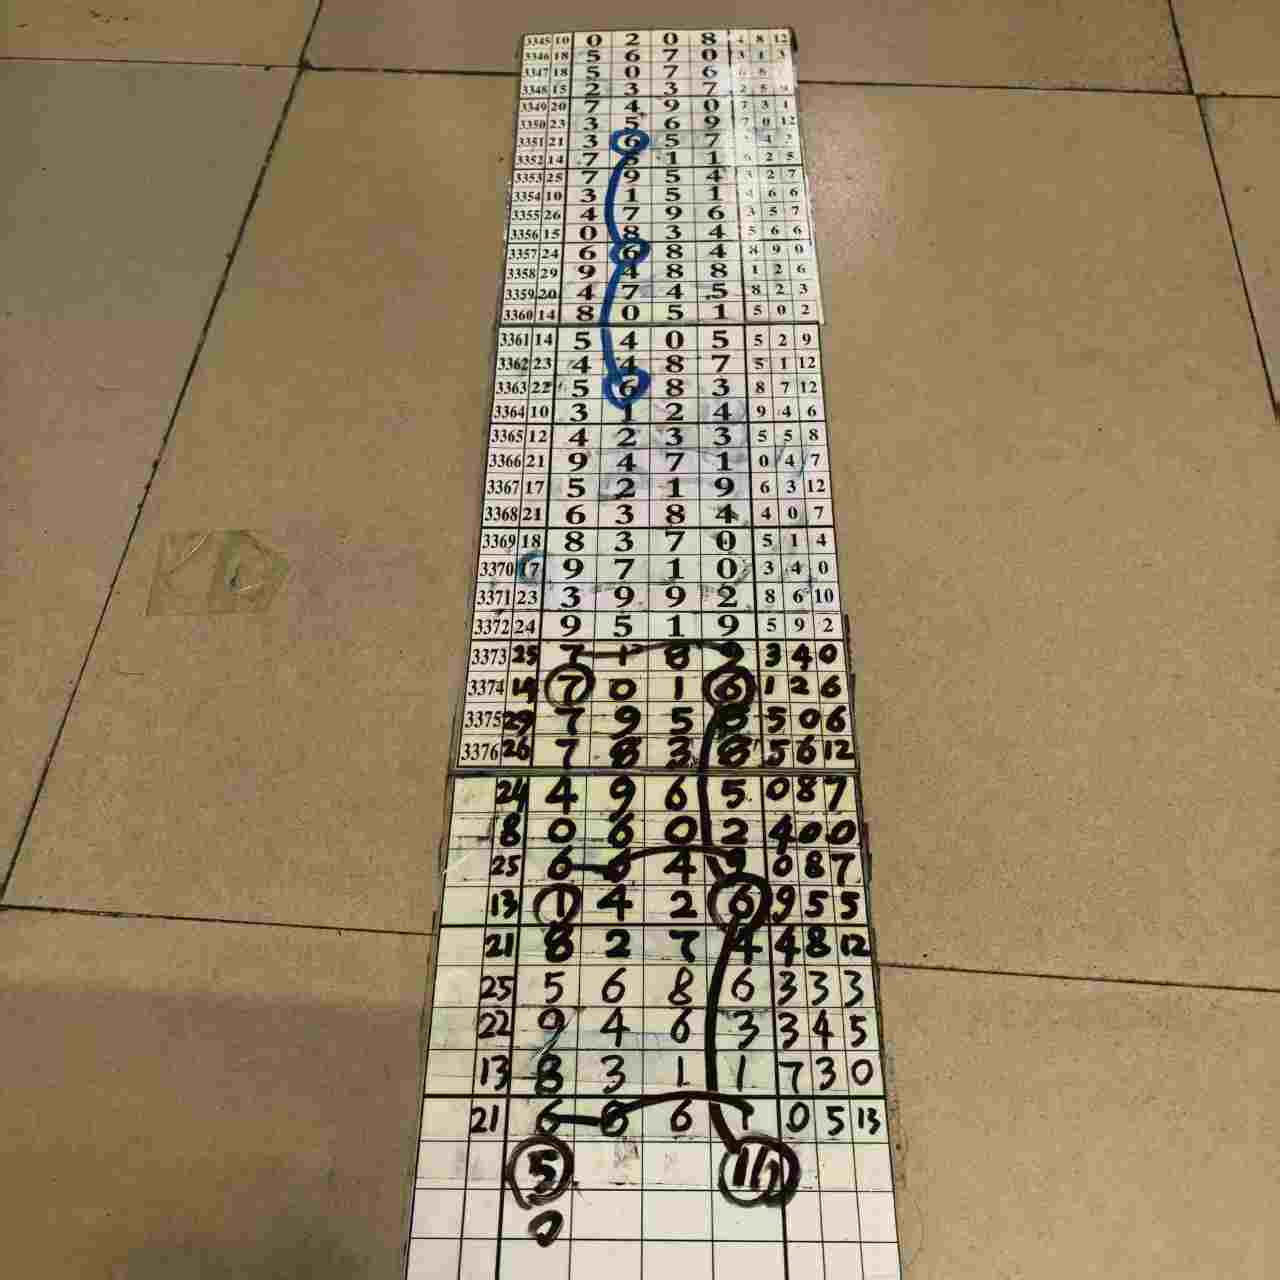 3345 10 0 2 0 8 4 8 12
3346 18 5 6 7 0 3 1 3
3347 18 5 0 7 6 6 6
3348 15 2 3 3 7 2 5 9
3349 20 7 4 9 0 7 3 1
3350 23 3 5 6 9 7 0 12
3351 21 3 6 5 7 4 2
3352 14 7 5 1 1 6 2 5
3353 25 7 9 5 4 3 2 7
3354 10 3 1 5 1 4 6 6
3355 26 4 7 9 6 3 5 7
3356 15 0 8 3 4 5 6 6
3357 24 6 6 8 4 8 9 0
3358 29 9 4 8 8 1 2 6
3359 20 4 7 4 5 8 2 3
3360 14 8 0 5 1 5 0 2
3361 14 5 4 0 5 5 2 9
3362 23 4 4 8 7 5 1 12
3363 22 5 6 8 3 8 7 12
3364 10 3 1 2 4 9 4 6
3365 12 4 2 3 3 5 5 8
3366 21 9 4 7 1 0 4 7
3367 17 5 2 1 9 6 3 12
3368 21 6 3 8 4 4 0 7
3369 18 8 3 7 0 5 1 4
3370 17 9 7 1 0 3 4 0
3371 23 3 9 9 2 8 6 10
3372 24 9 5 1 9 5 9 2
3373 25 7 1 8 9 3 4 0
3374 14 7 0 1 6 1 2 6
3375 29 7 9 5 8 5 0 6
3376 26 7 8 3 8 5 6 12
24 4 9 6 5 0 8 7
8 0 6 0 2 4 0 0
25 6 6 4 9 0 8 7
13 1 4 2 6 9 5 5
21 8 2 7 4 4 8 12
25 5 6 8 6 3 3 3
22 9 4 6 3 3 4 5
13 8 3 1 1 7 3 0
21 6 8 6 1 0 5 13
5
0